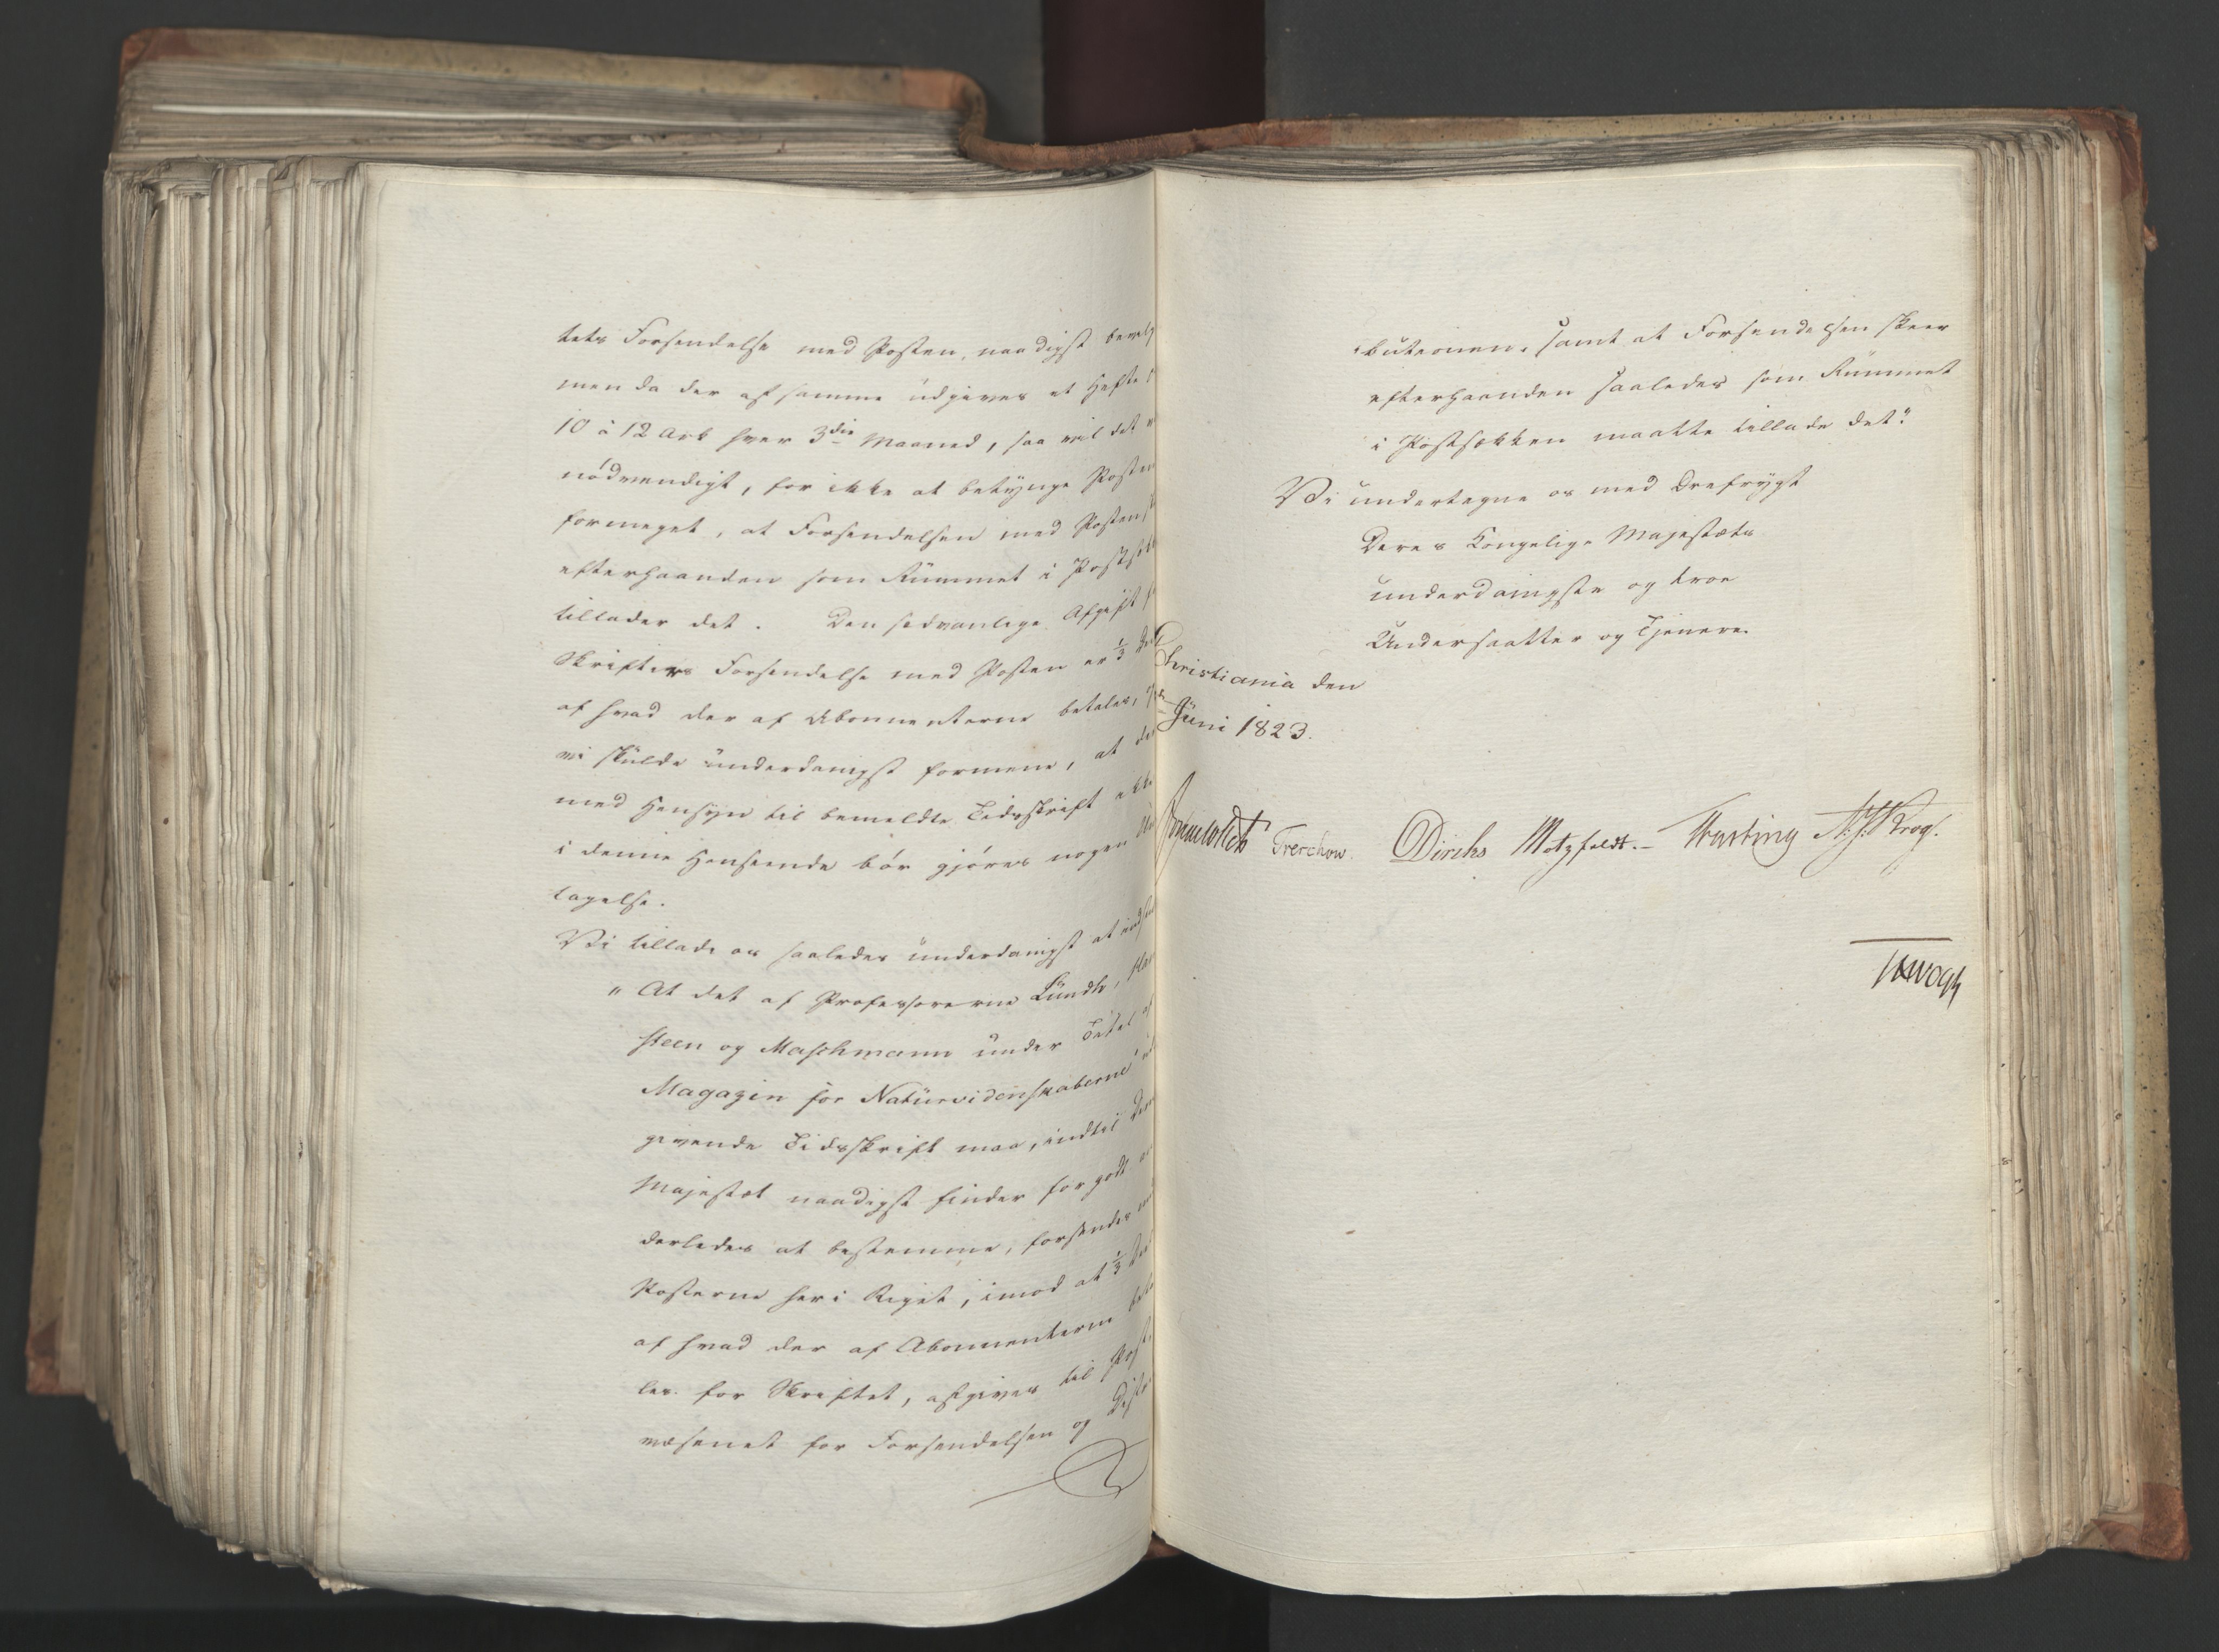 tets Forsendelse med Posten, naadigst
men da der af samme udgives et Hefte
10 à 12 Ark hver 3die Maaned, saa vil det
nødvendigt, for ikke at betynge Posten
formeget, at Forsendelsen med Posten
efterhaanden som Rummet i
tillader det. Den sedvanlige Afgift
Skrifters Forsendelse med Posten er 1/3
af hvad der af Abonnenterne betales,
vi skulde underdanigst formene, at
med Hensyn til bemeldte Tidsskrift
i denne Henseende bør gjøres nogen
tagelse.
Vi tillade os saaledes underdanigst at
"At det af Professorerne Lundh,
steen og Maschmann under Titel af
Magazin for Naturvidenskaberne
givende Tidsskrift maa, indtil
Majestæt naadigst finder for godt
derledes at bestemme, forsendes
Posterne her i Riget, imod at 1/3
af hvad der af Abonnenterne
les for Skriftet, afgives til
væsenet for Forsendelsen og
butionen, samt at Forsendelsen skeer
efterhaanden saaledes som Rummet
i Postsækken maatte tillade det."
Vi undertegne os med Ærefrygt
Deres Kongelige Majestæts
underdanigste og troe
Undersaatter og Tjenere
Christiania den
Juni 1823.
Sommerhielm Treschow. Diriks Motzfeldt.- Fasting Krog.
JHVogt